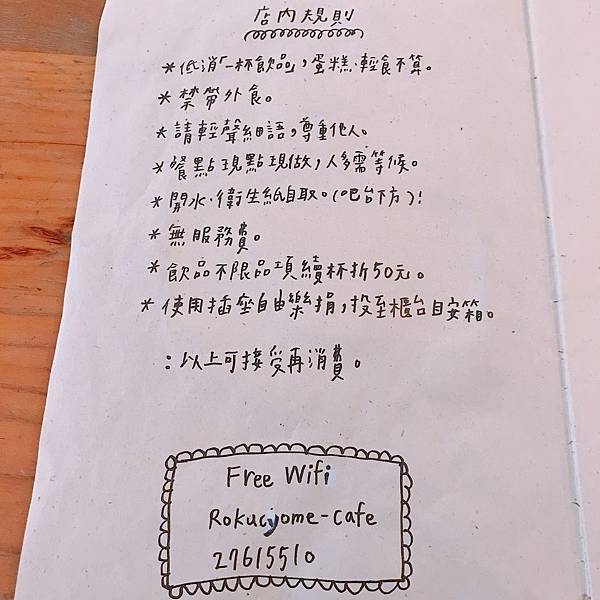 店內規則
*低消「一杯飲品」,蛋糕、輕食不算。
*禁帶外食。
*請輕聲細語,尊重他人。
*餐點現點現做,人多需等候。
*開水、衛生紙自取。(吧台下方)!
*無服務費。
*飲品不限品項續杯折50元。
*使用插座自由樂捐,投至櫃台目安箱。
:以上可接受再消費。
Free Wifi
Rokucyome-cafe
27615510